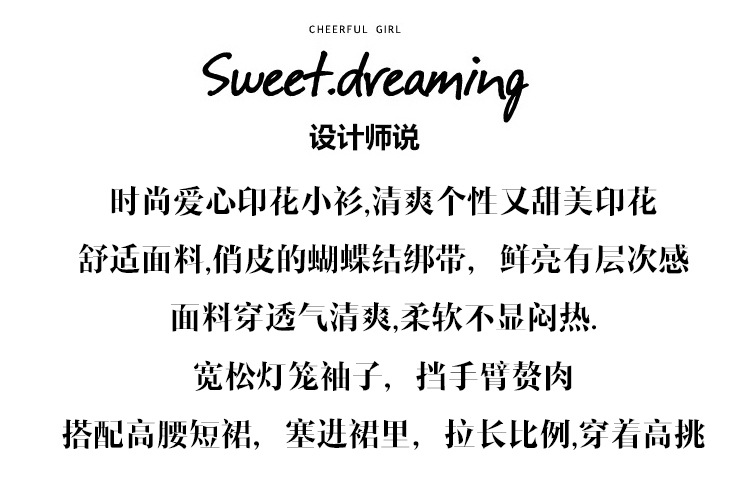 CHEERFUL GIRL
Sweet.dreaming
设计师说
时尚爱心印花小衫,清爽个性又甜美印花
舒适面料,俏皮的蝴蝶结绑带，鲜亮有层次感
面料穿透气清爽,柔软不显闷热.
宽松灯笼袖子，挡手臂赘肉
搭配高腰短裙，塞进裙里，拉长比例,穿着高挑